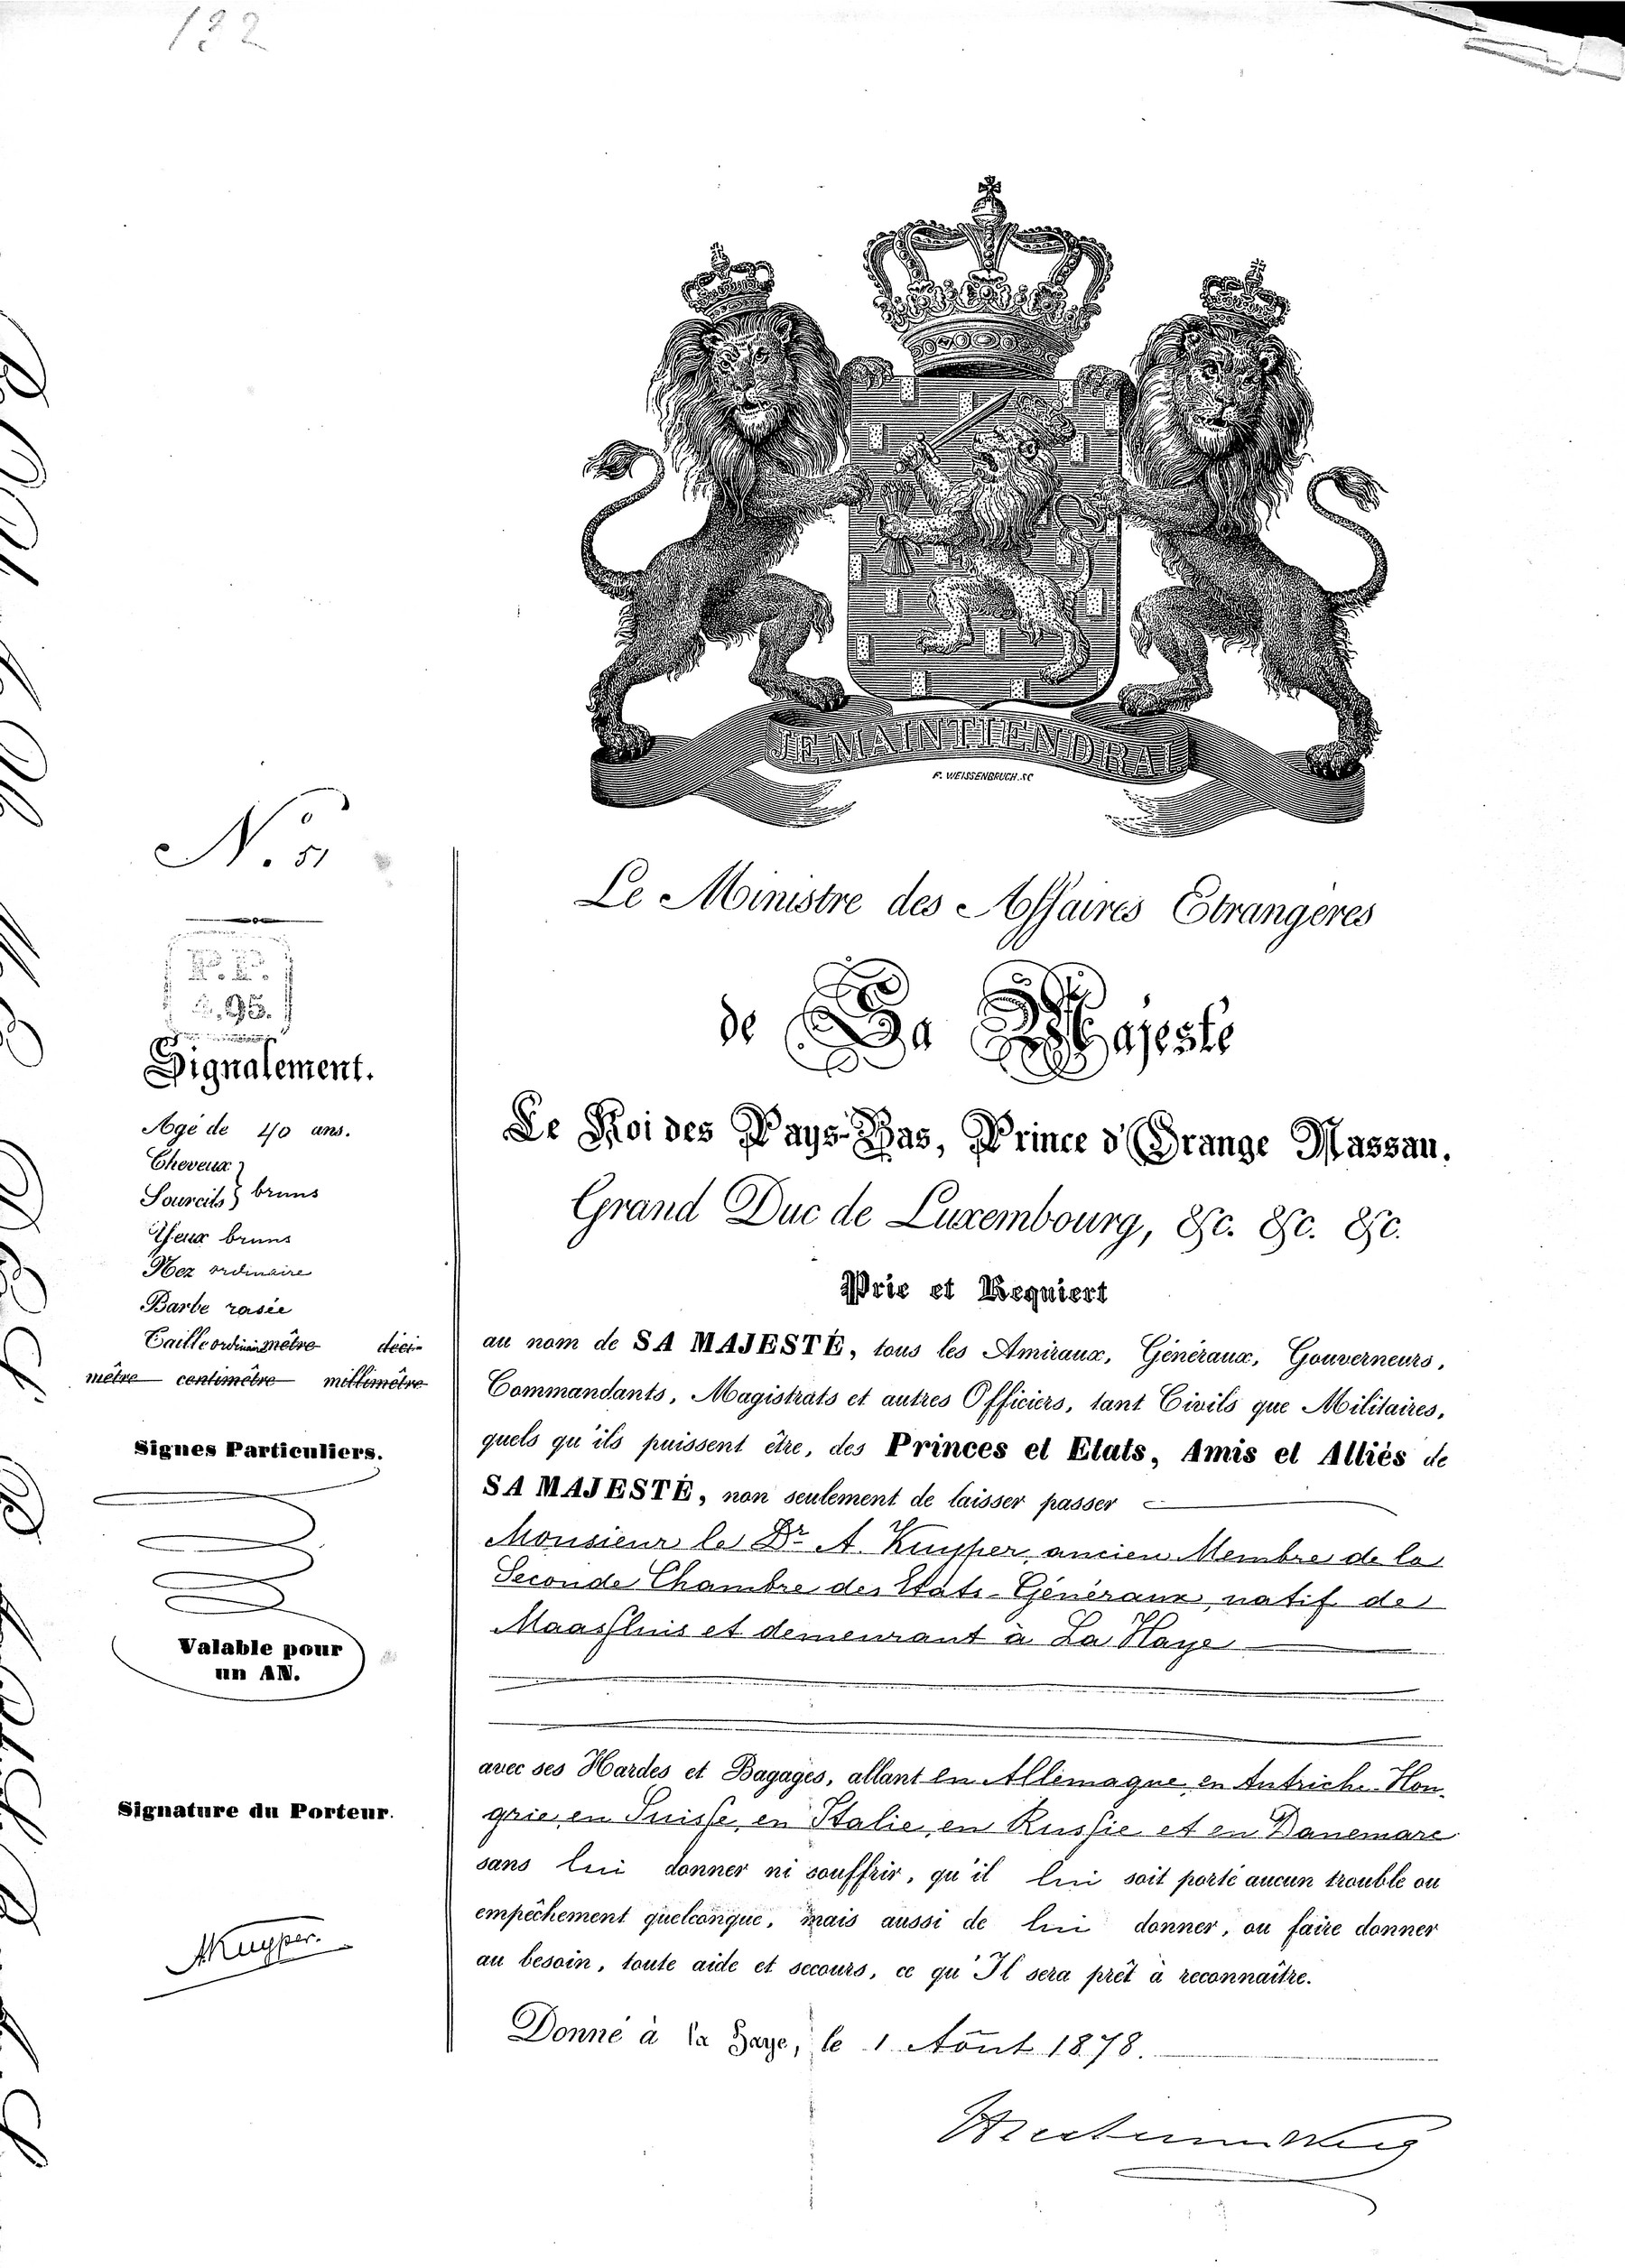 132
JE MAINTIENDRAI
F. WEISSENBRUCH.SC
N.º 51
Le Ministre des Affaires Etrangères
de Sa Majesté
Le Roi des Pays-Bas, Prince d'Orange Nassau,
Grand Duc de Luxembourg, &c. &c. &c.
Prie et Requiert
au nom de SA MAJESTÉ, tous les Amiraux, Généraux, Gouverneurs,
Commandants, Magistrats et autres Officiers, tant Civils que Militaires,
quels qu'ils puissent être, des Princes et Etats, Amis et Alliés de
SA MAJESTÉ, non seulement de laisser passer
Monsieur le Dr A. Kuyper, ancien Membre de la
Seconde Chambre des Etats-Généraux, natif de
Maassluis et demeurant à La Haye
avec ses Hardes et Bagages, allant en Allemagne, en Autriche Hon-
grie, en Suisse, en Italie, en Russie et en Danemarc
sans lui donner ni souffrir, qu'il lui soit porté aucun trouble ou
empêchement quelconque, mais aussi de lui donner, ou faire donner
au besoin, toute aide et secours, ce qu'Il sera prêt à reconnaître.
Donné à la Haye, le 1 Août 1878.
Signalement.
Agé de 40 ans.
Cheveux }
Sourcils } bruns
Yeux bruns
Nez ordinaire
Barbe rasée
Taille ordinaire mètre déci-
mètre centimètre millimètre
Signes Particuliers.
Valable pour
un AN.
Signature du Porteur.
AKuyper.